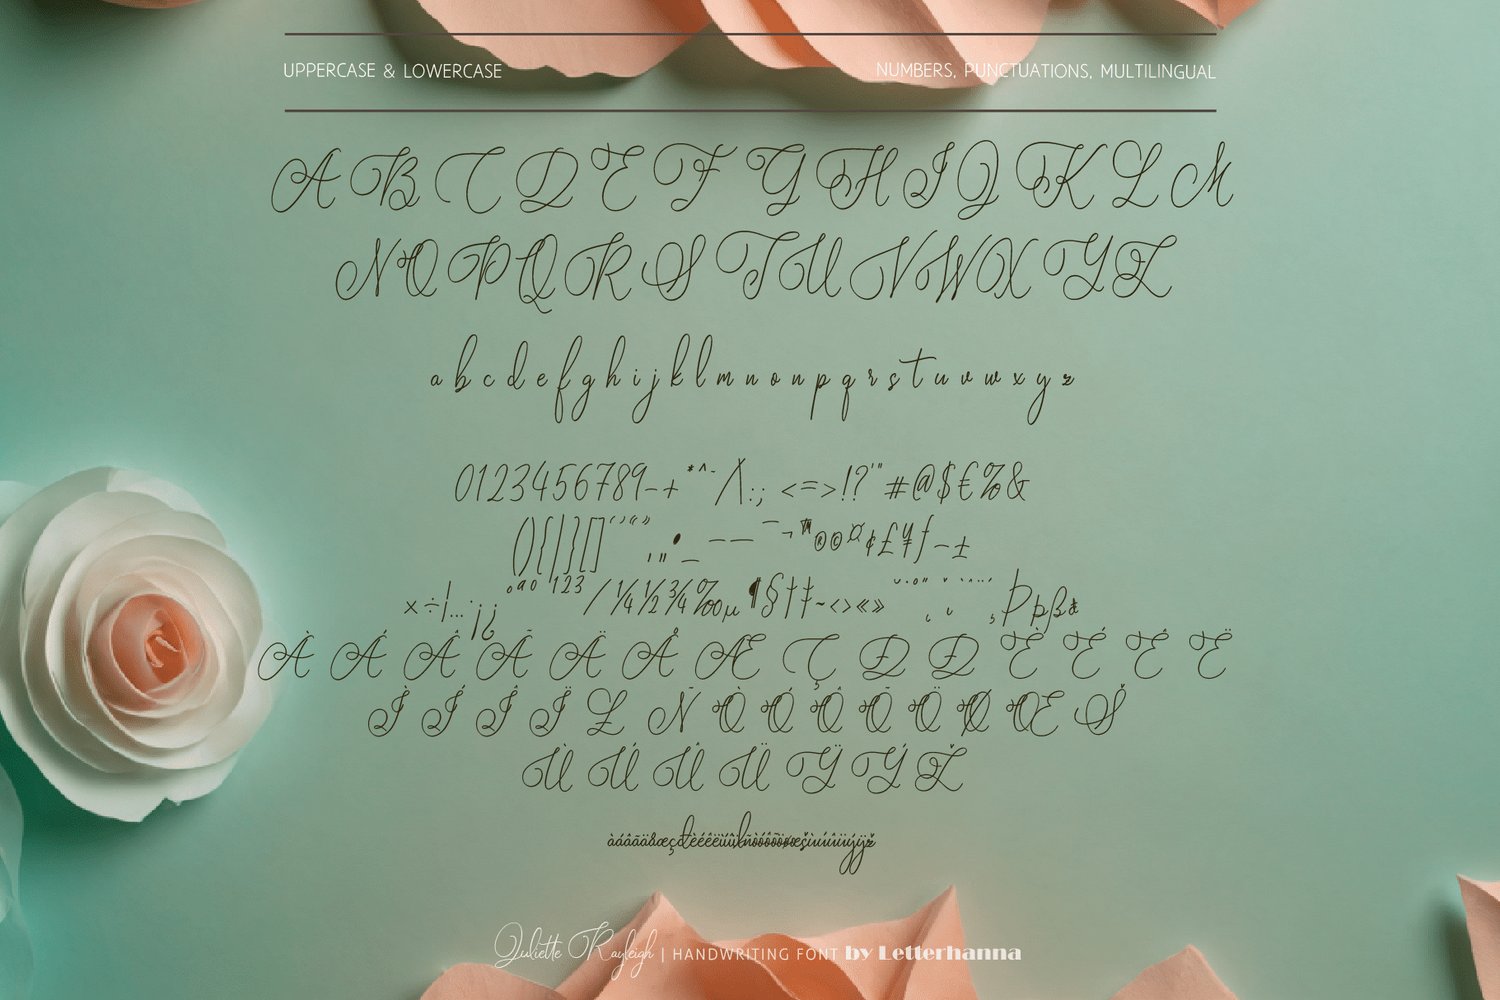 UPPERCASE & LOWERCASE
NUMBERS, PUNCTUATIONS, MULTILINGUAL
A B C D E F G H I J K L M
N O P Q R S T U V W X Y Z
a b c d e f g h i j k l m n o n p q r s t u v w x y z
0123456789-+*^~/\:;<=>!?'"#@$€%&
(){|}[]‘’“”‚„•_–—¯¬™®©¤¢£¥ƒ−±
×÷¦…¡¿ºªº¹²³⁄¼½¾‰µ¶§†‡~‹›«»˘˙˚˝ˇÞþßđ
À Á Â Ã Ä Å Æ Ç Ð Đ È É Ê Ë
Ì Í Î Ï Ł Ñ Ò Ó Ô Õ Ö Ø Œ Š
Ù Ú Û Ü Ÿ Ý Ž
Juliette Rayleigh | HANDWRITING FONT by Letterhanna